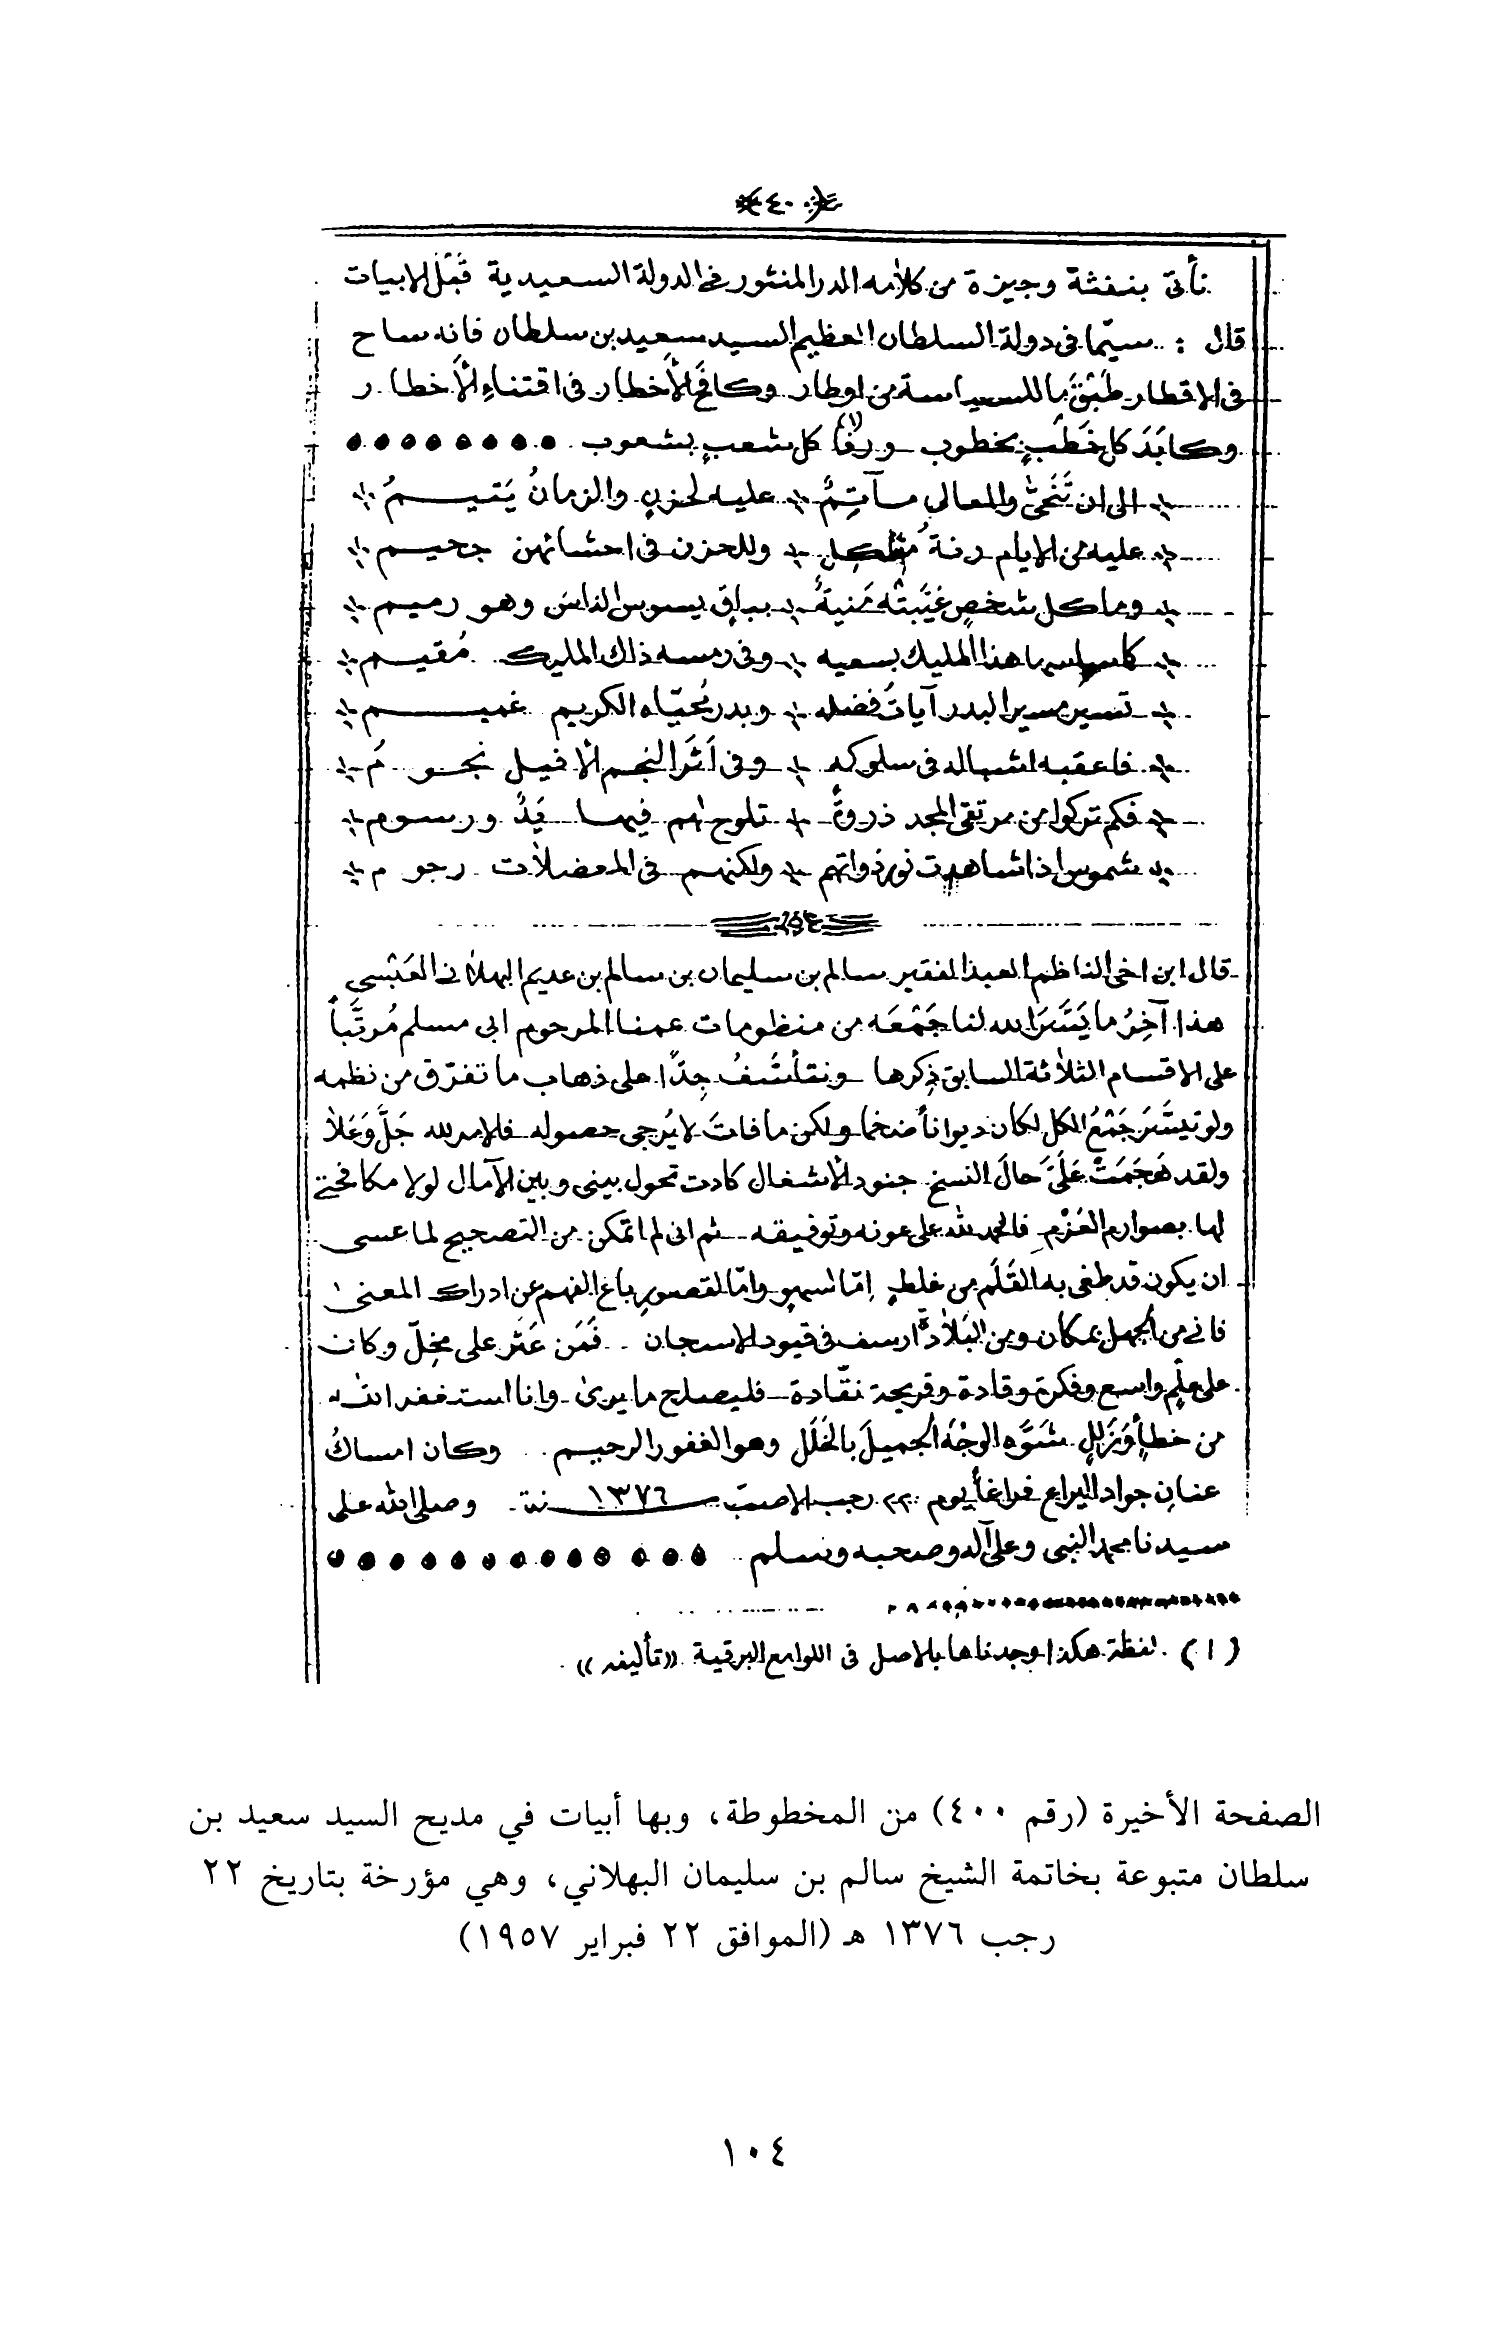 ٤٠٠
نأتي بنفثة وجيزة من كلامه الدر المنثور في الدولة السعيدية قبل الابيات
قال : سيّما في دولة السلطان المعظم السيد سعيد بن سلطان فانه ساح
في الاقطار طبق ما للسياسة من اوطار وكافح الأخطار في اقتناء الأخطار
وكابَدَ كل خَطبٍ بخطوب ورفأ (١) كل شعبٍ بشعوب
الى ان تَنَحّى والمعالي مآتِمٌ عليه لحزنٍ والزمانُ يَتيمُ
عليه من الايام رنة مثكل وللحزن في احشائهن جحيم
وما كل شخصٍ غيّبته منيةٌ بباقٍ يسوس الناسَ وهو رميم
كما ساسها هذا المليك بسعيه وفي رمسه ذاك المليك مُقيم
تسير مسير البدر آياتُ فضله وبدر مُحيّاه الكريم غميم
فاعقبه اشباله في سلوكه وفي أثَر النجم الأفيل نجومُ
فكم تركوا من مرتقى المجد ذروةً تلوح لهم فيها يَدٌ ورسوم
شموس اذا شاهدت نور ذواتهم ولكنهم في المعضلات رجوم
قال ابن اخي الناظم العبد الفقير سالم بن سليمان بن سالم بن عديم البهلاني العَبْسي
هذا آخِرُ ما يَسَّرَ الله لنا جَمْعَه من منظومات عمنا المرحوم ابي مسلم مُرتَّباً
على الاقسام الثلاثة السابق ذِكرها ونتأسَّفُ جِدًّا على ذهاب ما تفرّق من نظمه
ولو تيسَّرَ جَمْعُ الكل لكان ديواناً ضخما ولكن ما فاتَ لا يُرجى حصوله فالامر لله جَلَّ وَعَلا
ولقد هَجَمَتْ عَلَيَّ حالَ النسخ جنود الأشغال كادت تحول بيني وبين الآمال لولا مكافحتي
لها بصوارم العَزْمِ فالحمد لله على عونه وتوفيقه ثم اني لم اتمكن من التصحيح لما عسى
ان يكون قد طغى به القَلَم من غلطٍ إمّا لسهوٍ وامّا لقصورِ باع الفهم عن ادراك المعنى
فاني من الجهل بمكان ومن البَلادة ارسف في قيود الاسجان فَمَن عَثَر على مخِلّ وكان
على علمٍ واسع وفكرة وقادة وقريحة نقّادة فليصلح ما يرى وانا استغفر الله
من خطأٍ وَزَللٍ شَوَّه الوجْهَ الجميلَ بالخَلَل وهو الغفور الرحيم وكان امساكُ
عنانِ جواد اليراع فراغاً يوم ٢٢ رجب الاصبّ سنة ١٣٧٦ وصلى الله على
سيدنا محمد النبي وعلى آله وصحبه وسلم
(١) لفظة هكذا وجدناها بالاصل في اللوامع البرقية «تأليفه»
الصفحة الأخيرة (رقم ٤٠٠) من المخطوطة، وبها أبيات في مديح السيد سعيد بن
سلطان متبوعة بخاتمة الشيخ سالم بن سليمان البهلاني، وهي مؤرخة بتاريخ ٢٢
رجب ١٣٧٦ هـ (الموافق ٢٢ فبراير ١٩٥٧)
١٠٤